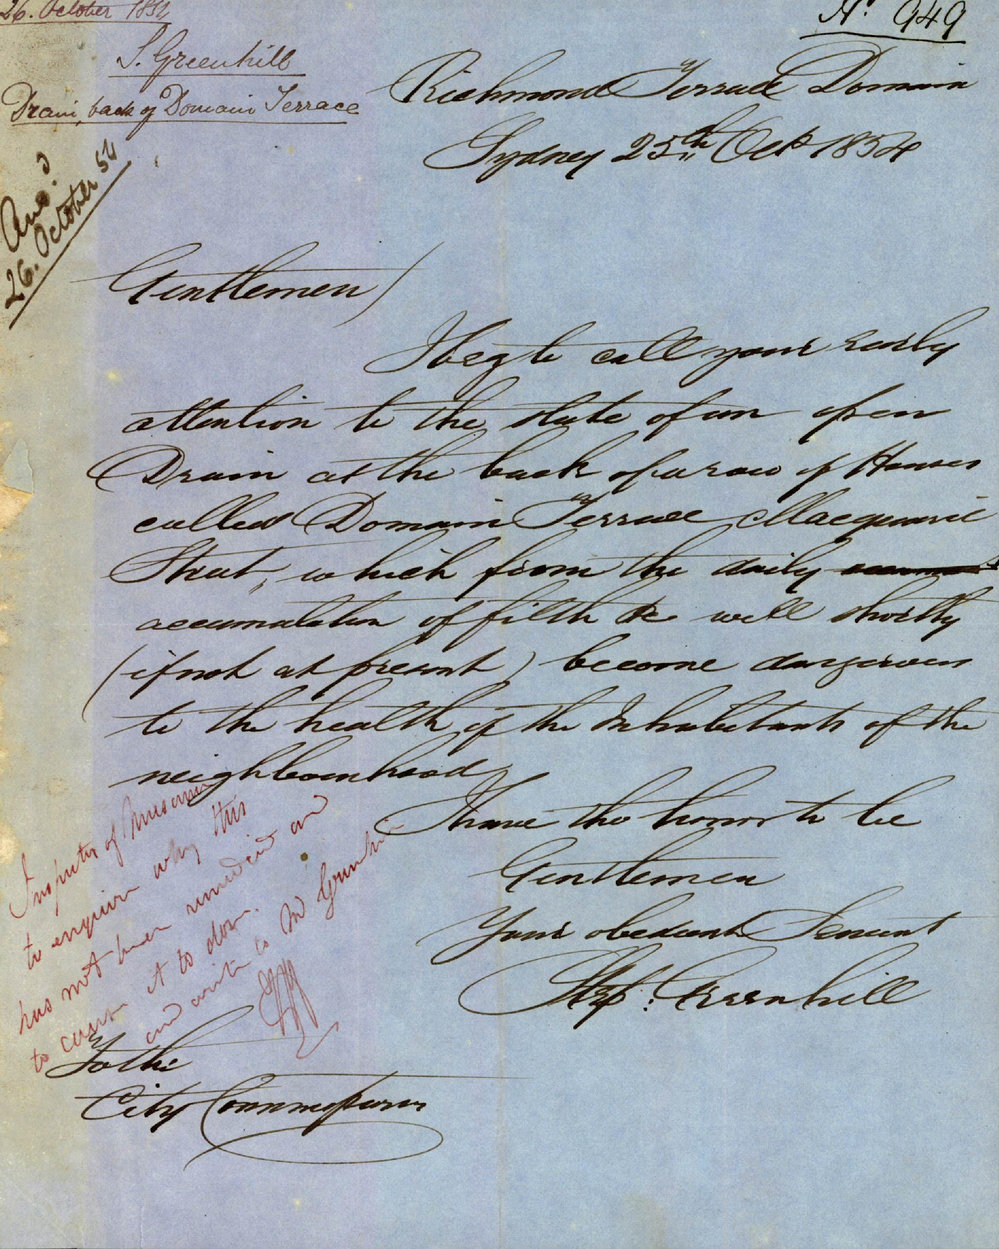 26. October 1854
S. Greenhill
Drain, back of Domain Terrace
Ansd
26. October 54
No. 949
Richmond Terrace Domain
Sydney 25th Oct 1854
Gentlemen)
I beg to call your early
attention to the state of an open
Drain at the back of a row of Houses
called Domain Terrace Macquarie
Street, which from the daily
accumulation of filth &c will shortly
(if not at present) become dangerous
to the health of the Inhabitants of the
neighbourhood
I have the honor to be
Gentlemen
Your obedient Servant
Stepn. Greenhill
To the
City Commissioners
Inspector of Nuisances
to enquire why this
has not been remedied and
to cause it to done.
and write to Mr Greenhill